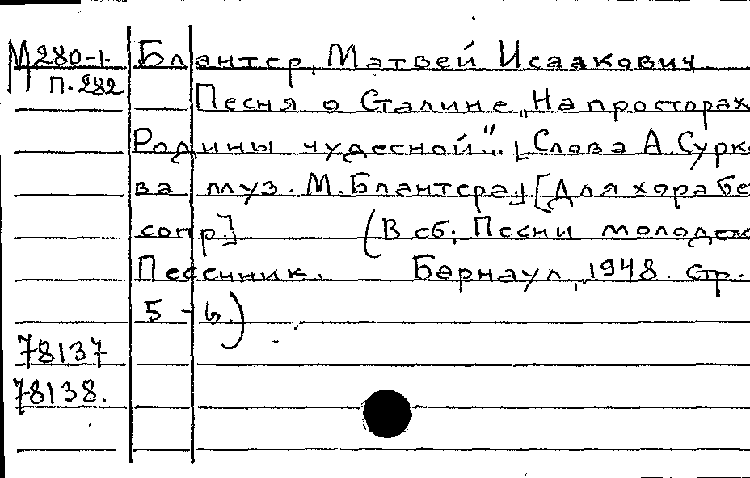 М280-1 Блантер, Матвей Исаакович.
П.282 Песня о Сталине „На просторах
Родины чудесной". [Слова А.Сурко
ва муз. М.Блантера] [Для хора бе
сопр] (В сб: Песни молодеж
Песенник. Барнаул, 1948. стр.
5-6.)
78137
78138.